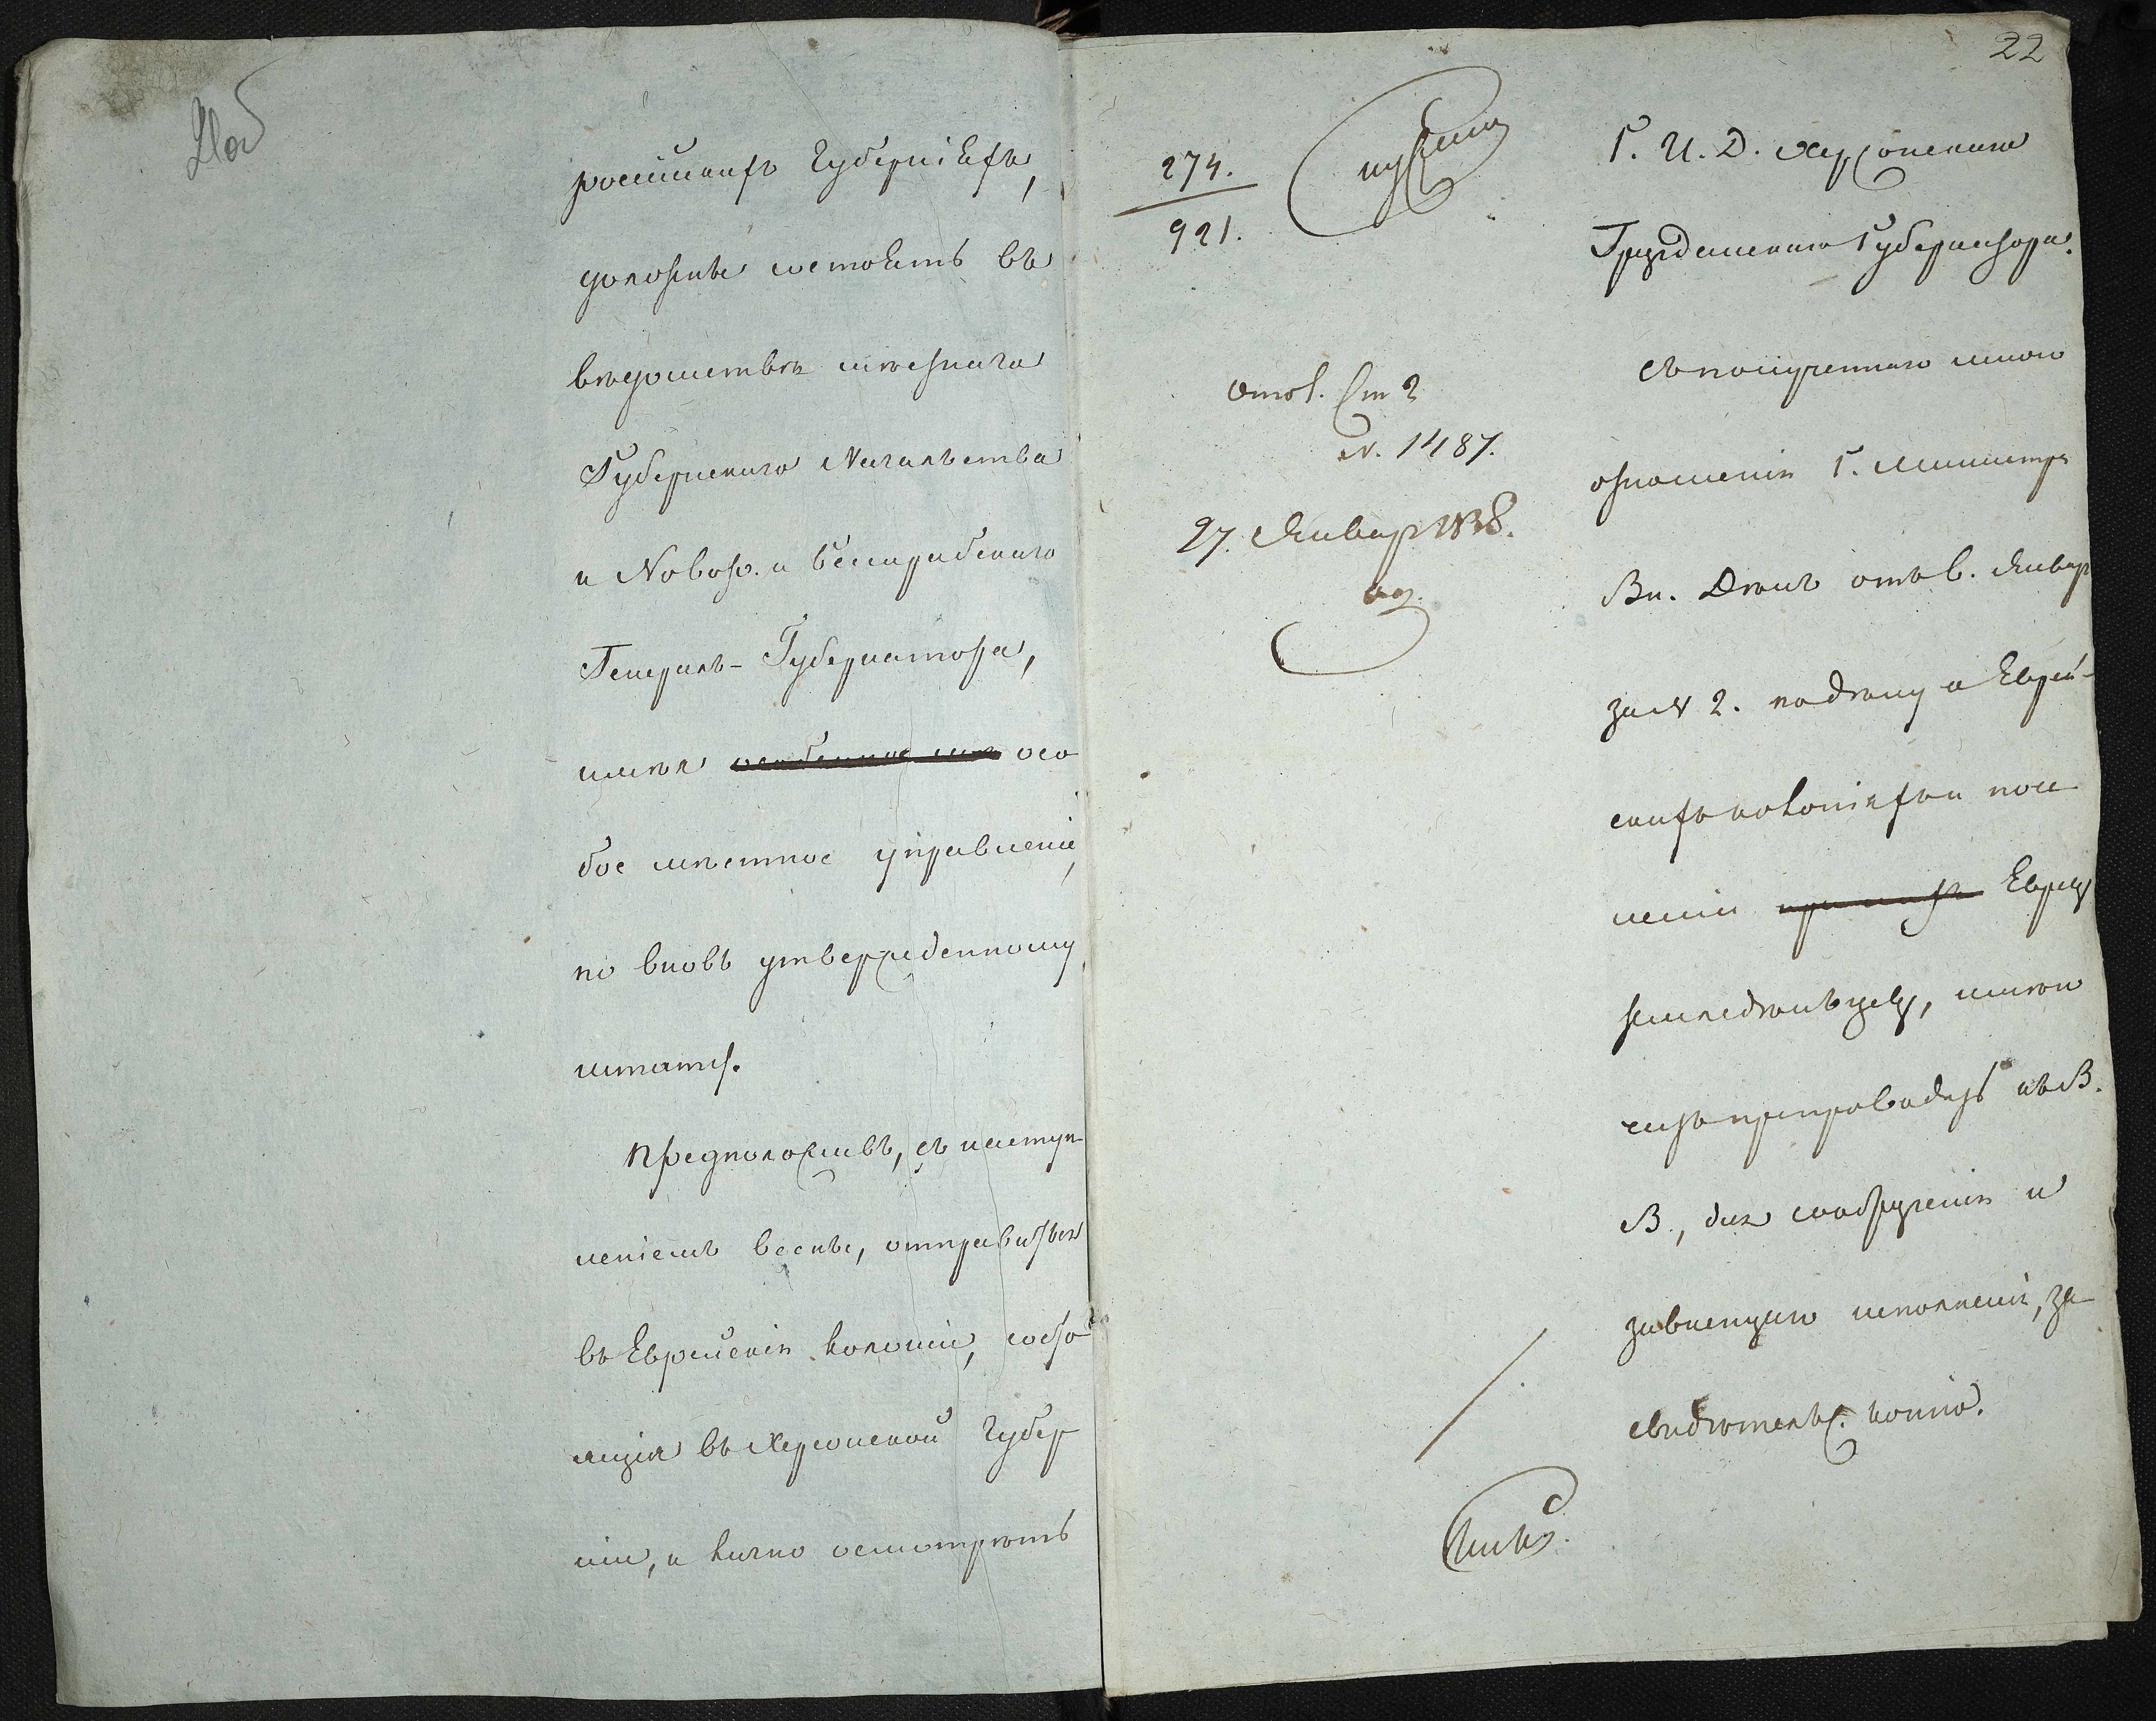 россійскихъ Губерніяхъ,
должны состоять въ
вѣдомствѣ мѣстнаго
Губернскаго Начальства
и Новор. и Бессарабскаго
Генералъ-Губернатора,
имѣя осо
бое мѣстное управленіе,
по вновь утвержденному
штату.
Предположивъ, съ наступ
леніемъ весны, отправиться
въ Еврейскія колоніи, состо
ящія въ Херсонской Губер
ніи, и лично осмотрѣть
22
274.
921.
Отв. Ст 2
N. 1487.
27. Января 1838.
Г. И. Д. Херсонскаго
Гражданскаго Губернатора.
Съ полученнаго мною
отношенія Г. Министра
Вн. Дѣлъ отъ 6. Января
за N 2. по дѣлу о Еврей-
скихъ колоніяхъ и посе
леніи Евреевъ
земледѣльцевъ, имѣю
честь препроводить къ В.
В., для соображенія и
зависящаго исполненія, за
свидѣтельс. копію.